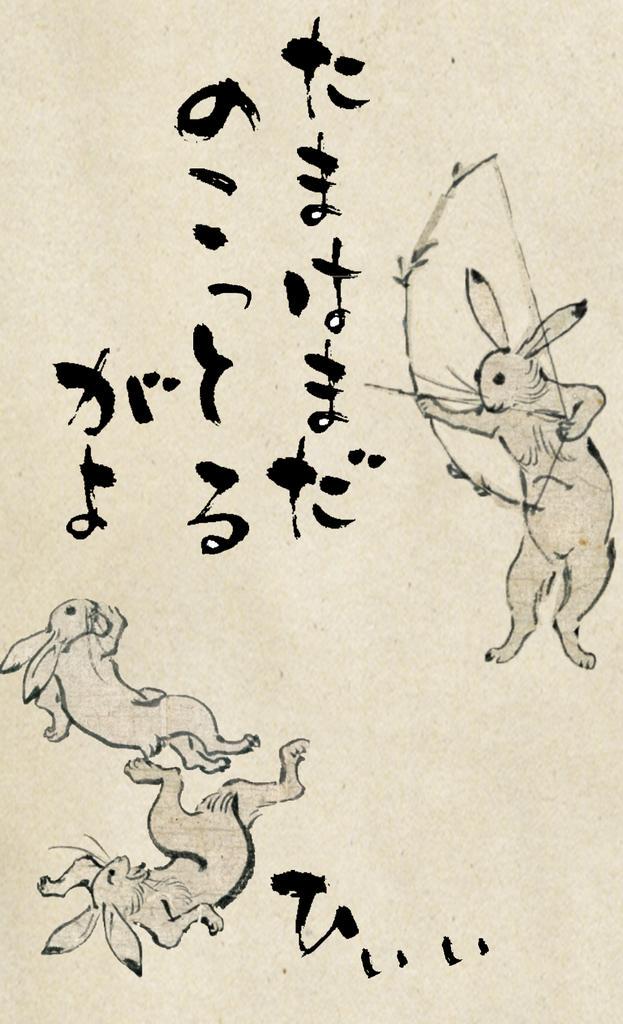 たまはまだ
のこっとる
がよ
ひぃぃ